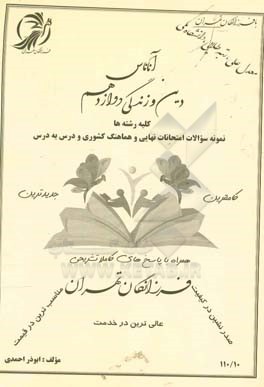 با فرزانگان تهران
معدل عالی، رتبه عالی، دانشگاه عالی
آناناس
دین و زندگی دوازدهم
کلیه رشته ها
نمونه سؤالات امتحانات نهایی و هماهنگ کشوری و درس به درس
کاملترین
جدیدترین
همراه با پاسخ های کاملا تشریحی
فرزانگان تهران
صدر نشین در کیفیت
مناسب ترین در قیمت
عالی ترین در خدمت
مؤلف : ابوذر احمدی
۱۱۰/۱۰